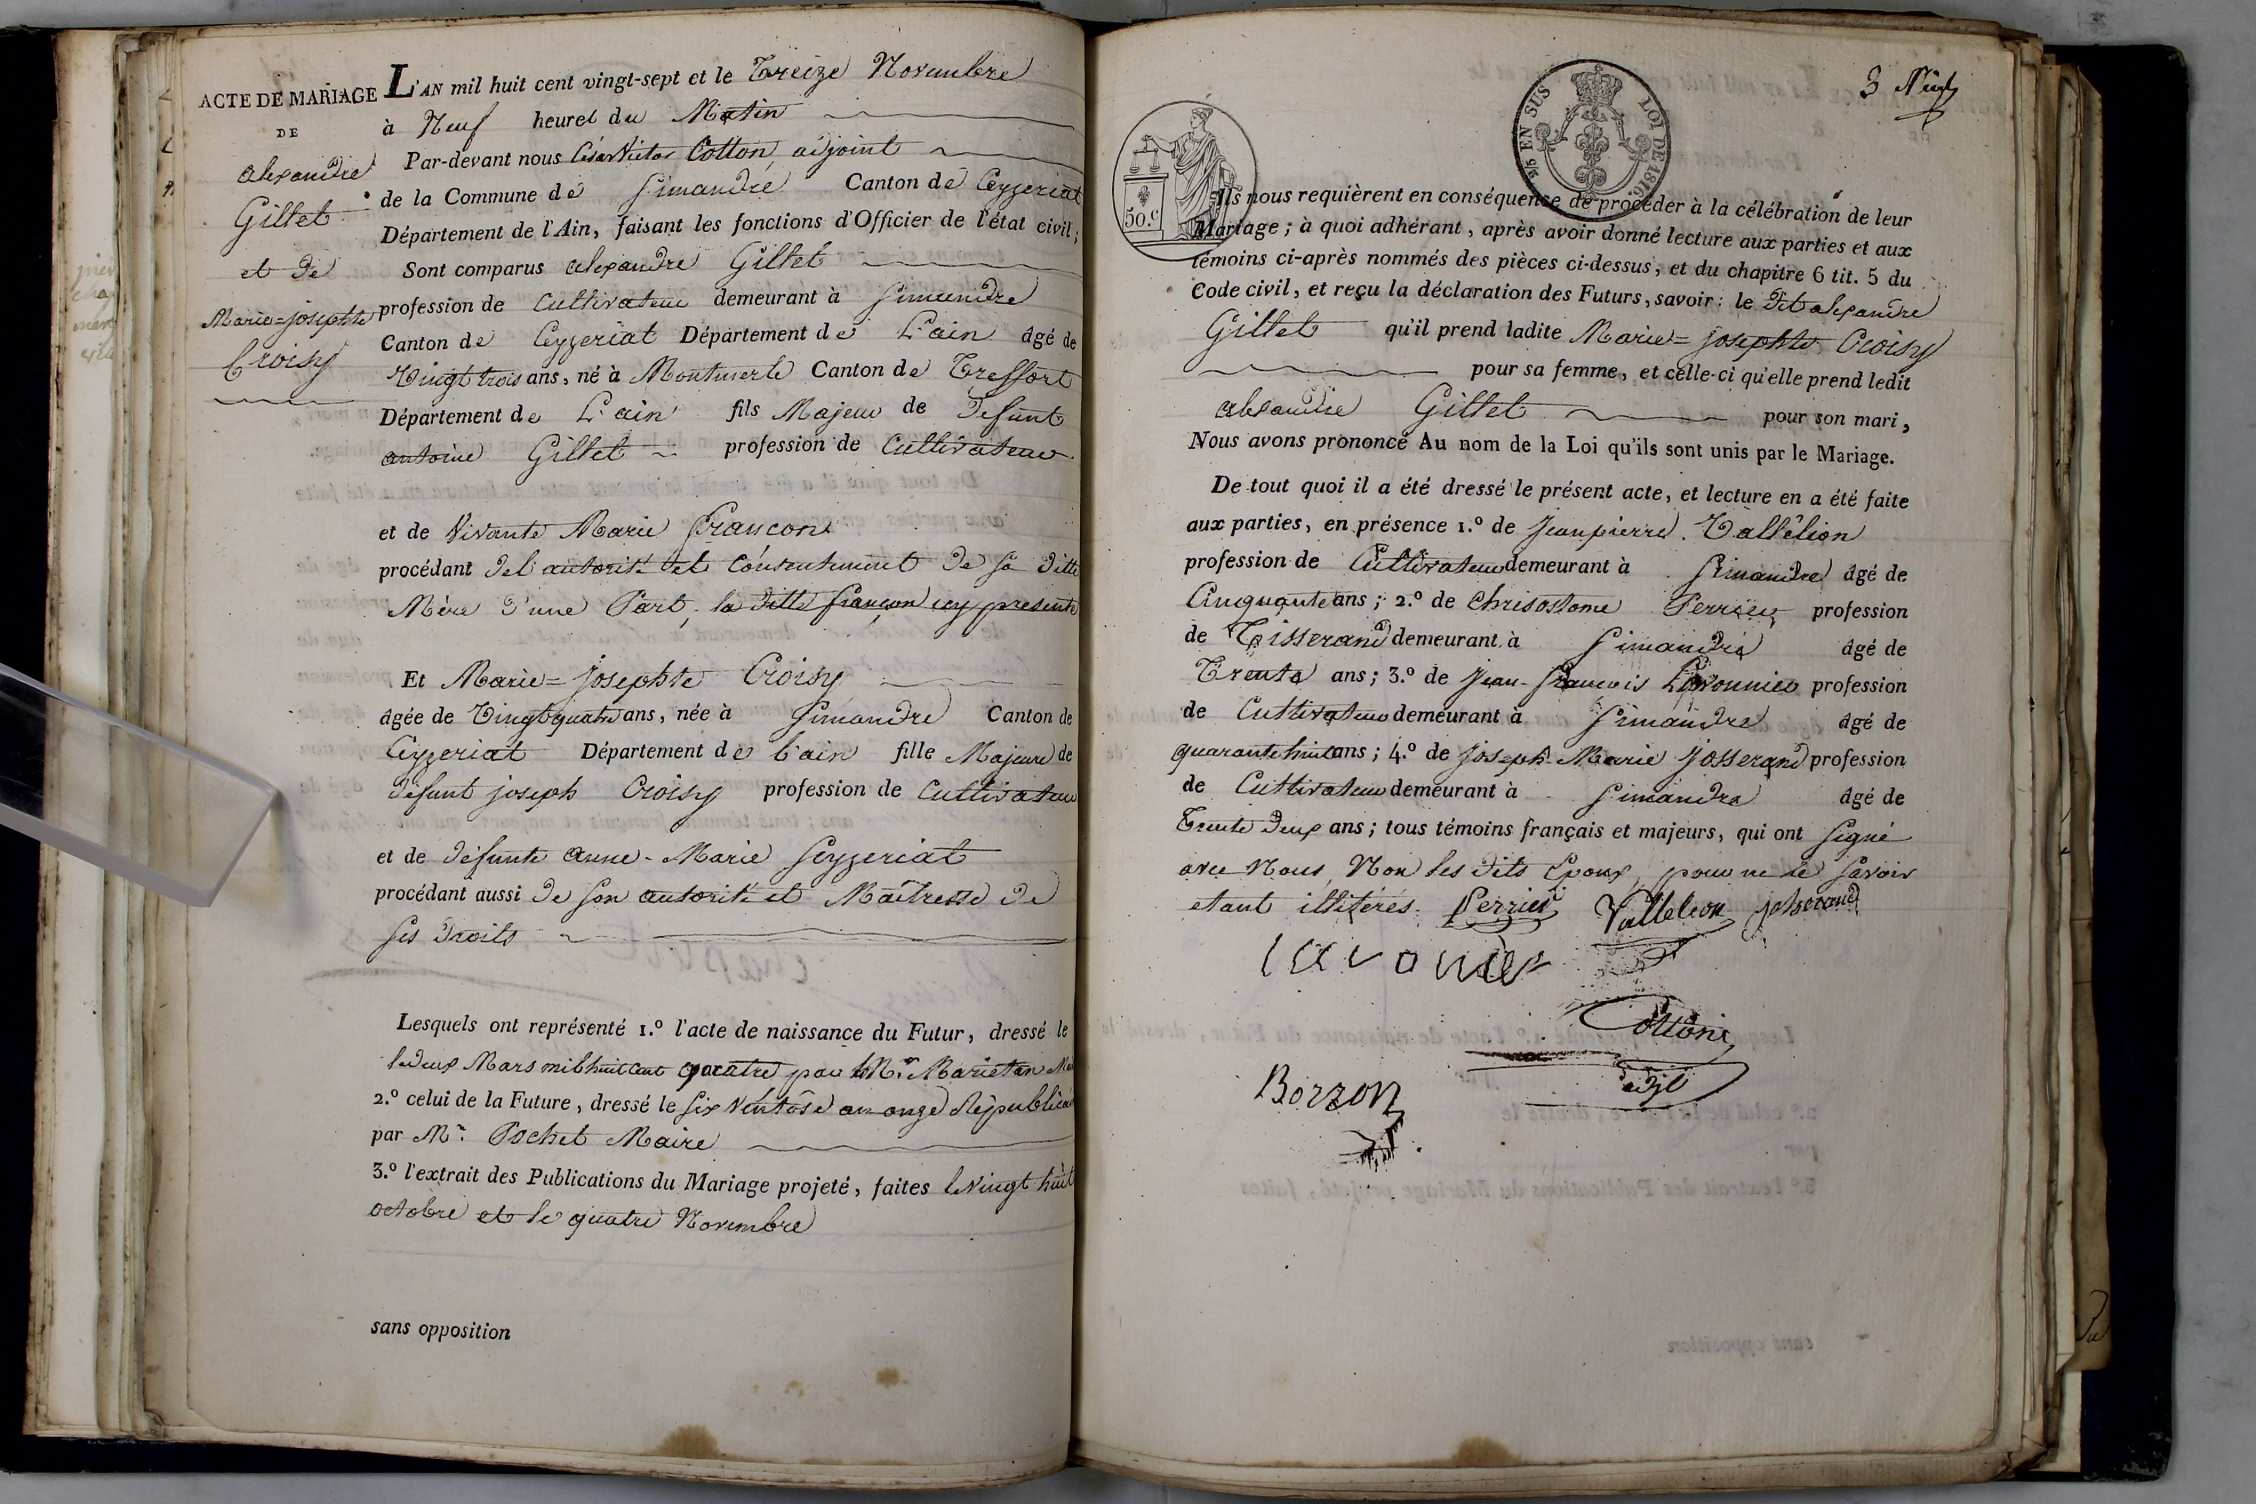 ACTE DE MARIAGE
DE
alexandre
Gillet
et de
Marie=josephte
Croisy
L'AN mil huit cent vingt-sept et le Treize Novembre
à Neuf heures du Matin
Par-devant nous César Victor Cotton, adjoint
de la Commune de Simandre Canton de Ceyzeriat
Département de l'Ain, faisant les fonctions d'Officier de l'état civil;
Sont comparus alexandre Gillet
profession de Cultivateur demeurant à Simandre
Canton de Ceyzeriat Département de L'ain âgé de
Vingt trois ans, né à Montmerle Canton de Treffort
Département de L'ain fils Majeur de defunt
antoine Gillet profession de Cultivateur
et de Vivante Marie françon
procédant de l'autorité et Consentement de sa ditte
Mère d'une Part, la ditte françon icy presente
Et Marie=josephte Croisy
âgée de Vingt quatre ans, née à Simandre Canton de
Ceyzeriat Département de L'ain fille Majeure de
défunt joseph Croisy profession de Cultivateur
et de défunte anne-Marie Ceyzeriat
procédant aussi de son autorité et Maîtresse de
ses droits
Lesquels ont représenté 1.º l'acte de naissance du Futur, dressé le
le deux Mars mil huit cent quatre par Mr. Marietan
2.º celui de la Future, dressé le six Ventôse an onze Républicain
par Mr. Pochet Maire
3.º l'extrait des Publications du Mariage projeté, faites le Vingt huit
octobre et le quatre Novembre
sans opposition
3
EN SUS
LOI DE 1816.
50.c
Ils nous requièrent en conséquence de procéder à la célébration de leur
Mariage; à quoi adhérant, après avoir donné lecture aux parties et aux
témoins ci-après nommés des pièces ci-dessus, et du chapitre 6 tit. 5 du
Code civil, et reçu la déclaration des Futurs, savoir: le dit alexandre
Gillet qu'il prend ladite Marie=josephte Croisy
pour sa femme, et celle-ci qu'elle prend ledit
alexandre Gillet pour son mari,
Nous avons prononcé Au nom de la Loi qu'ils sont unis par le Mariage.
De tout quoi il a été dressé le présent acte, et lecture en a été faite
aux parties, en présence 1.º de Jean pierre Vallélion
profession de Cultivateur demeurant à Simandre âgé de
Cinquante ans; 2.º de Chrisostome Perrier profession
de Tisserand demeurant à Simandre âgé de
Trente ans; 3.º de Jean-françois Lavonnier profession
de Cultivateur demeurant à Simandre âgé de
quarante huit ans; 4.º de joseph-Marie josserand profession
de Cultivateur demeurant à Simandre âgé de
Trente deux ans; tous témoins français et majeurs, qui ont signé
avec Nous, Non les dits Epoux, pour ne le savoir
etant illitérés. Perrier Valleleon josserand
lavonier
Cotton
adjt
Borzon